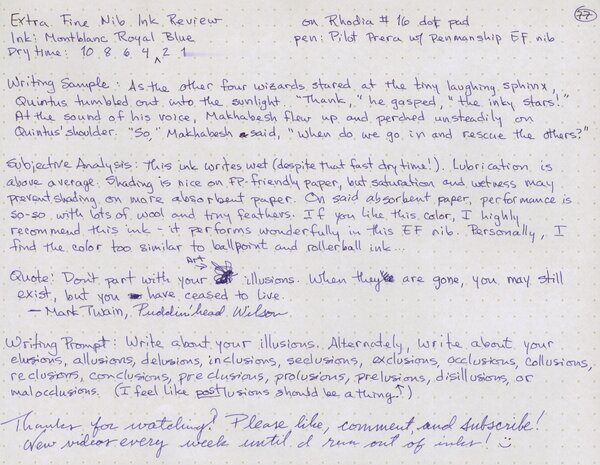 Extra Fine Nib Ink Review
on Rhodia # 16 dot pad
77
Ink: Montblanc Royal Blue
pen: Pilot Prera w/ Penmanship EF nib
Dry time: 10 8 6 4 2 1
Writing Sample: As the other four wizards stared at the tiny laughing sphinx,
Quintus tumbled out into the sunlight. "Thank," he gasped, "the inky stars!"
At the sound of his voice, Makhabesh flew up and perched unsteadily on
Quintus' shoulder. "So," Makhabesh said, "When do we go in and rescue the others?"
Subjective Analysis: This ink writes wet (despite that fast dry time!). Lubrication is
above average. Shading is nice on FP-friendly paper, but saturation and wetness may
prevent shading on more absorbent paper. On said absorbent paper, performance is
so-so with lots of wool and tiny feathers. If you like this color, I highly
recommend this ink - it performs wonderfully in this EF nib. Personally, I
find the color too similar to ballpoint and rollerball ink...
Art
Quote: Don't part with your illusions. When they are gone, you may still
exist, but you have ceased to live.
- Mark Twain, Pudd'inhead Wilson
Writing Prompt: Write about your illusions. Alternately, write about your
elusions, allusions, delusions, inclusions, seclusions, exclusions, occlusions, collusions,
reclusions, conclusions, preclusions, prolusions, prelusions, disillusions, or
malocclusions. (I feel like postlusions should be a thing!)
Thanks for watching! Please like, comment, and subscribe!
New videos every week until I run out of inks!